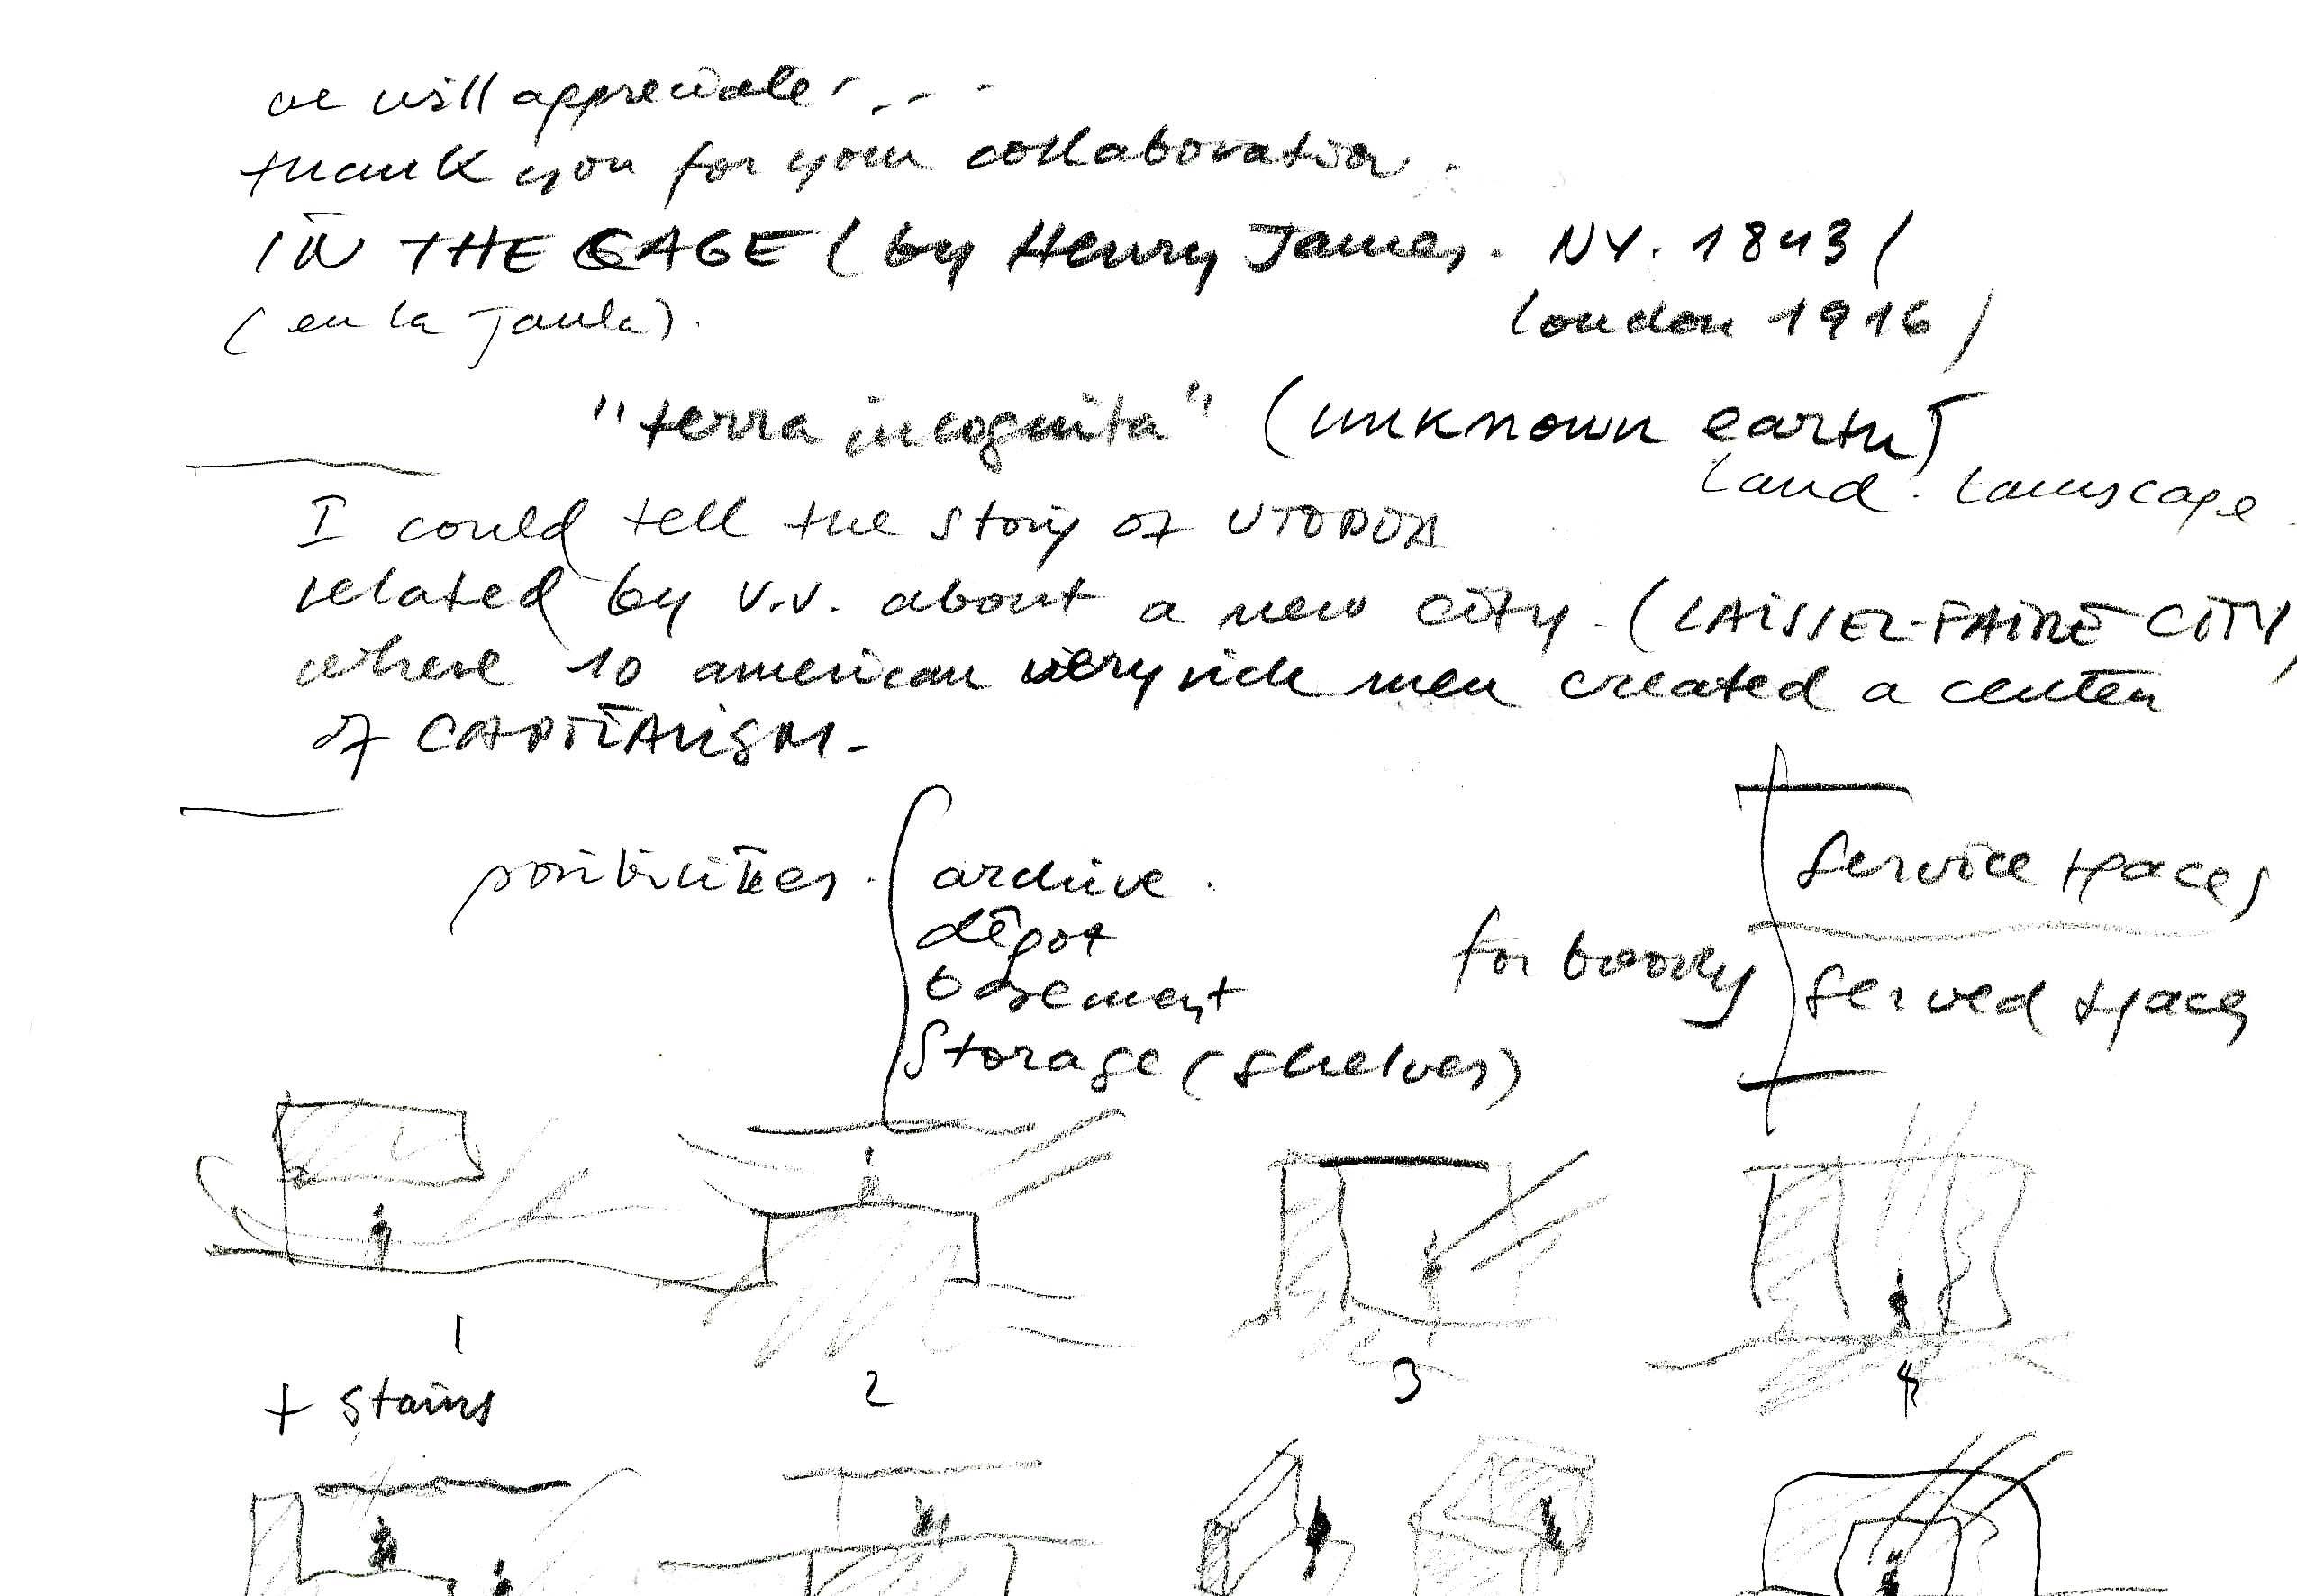 we will appreciate . . .
thank you for your collaboration.
IN THE CAGE (by Henry James. NY. 1843/
London 1916/
(en la jaula).
"terra incognita" (unknown earth)
land. lanscape.
I could tell the story of UTOPIA
related by V.V. about a new city. (LAISSEZ-FAIRE CITY,
where 10 american very rich men created a center
of CAPITALISM-
posibilities. archive.
dêpot
basement
Storage (shelves)
for
Service spaces
served spaces
1
2
3
4
+ stairs